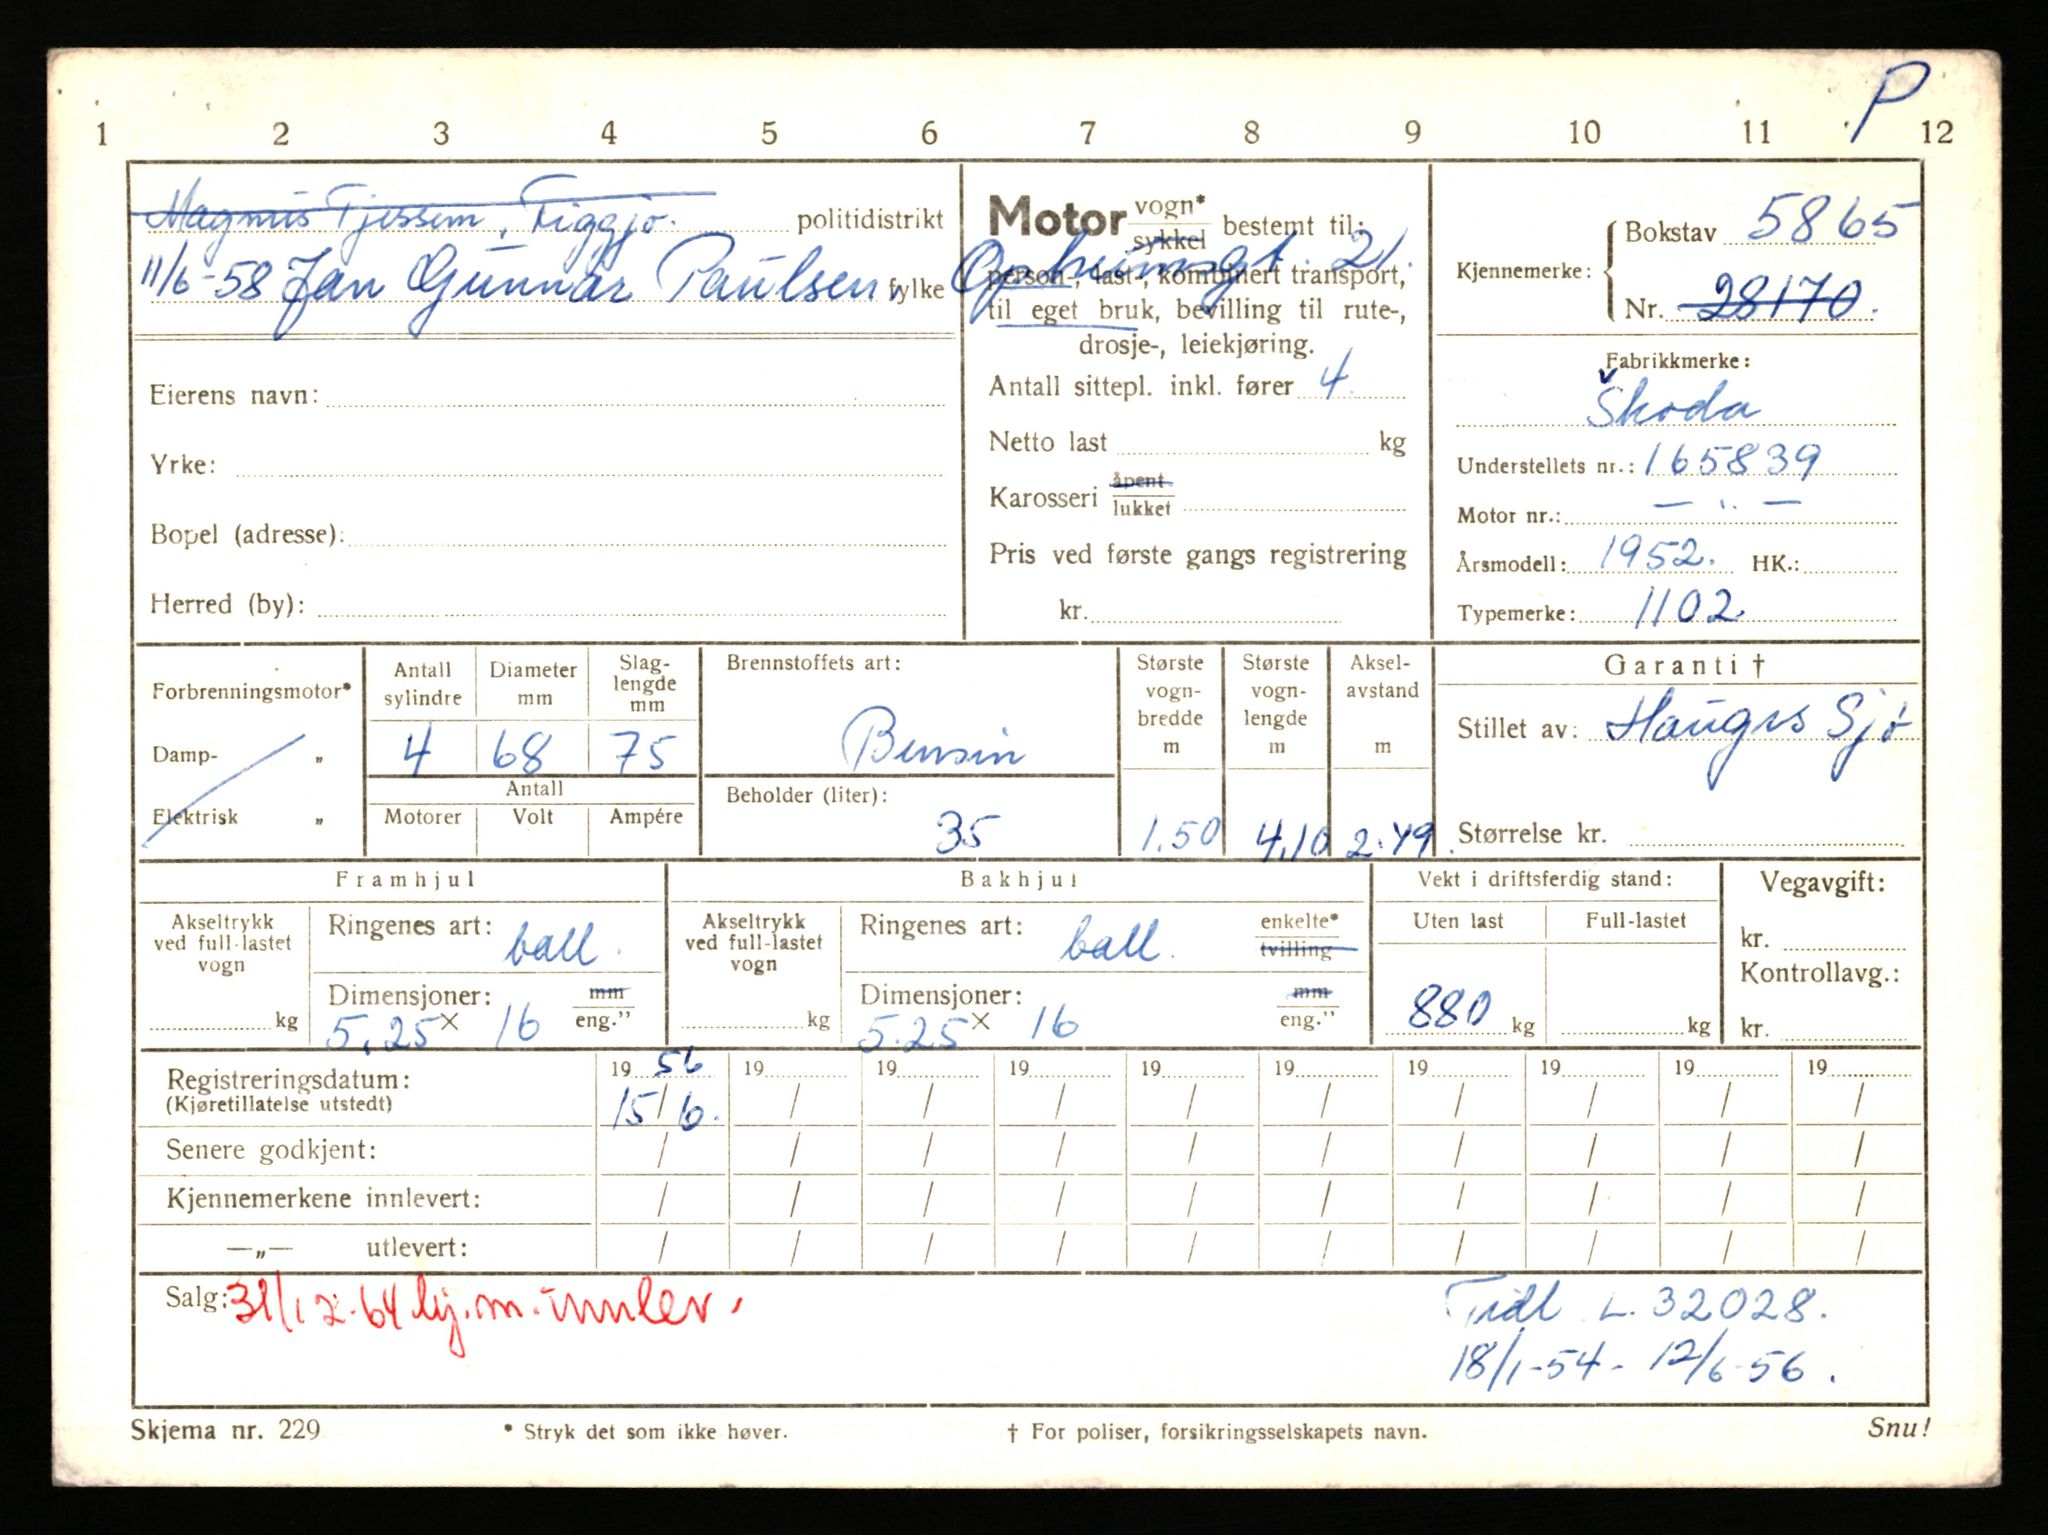 P
1 2 3 4 5 6 7 8 9 10 11 12
Magnus Tjessem, Figgjo. politidistrikt
11/6-58 Jan Gunnar Paulsen, fylke Opheimsgt. 21.
Eierens navn:
Yrke:
Bopel (adresse):
Herred (by):
Motor vogn* sykkel bestemt til:
person-, last-, kombinert transport,
til eget bruk, bevilling til rute-,
drosje-, leiekjøring.
Antall sittepl. inkl. fører 4
Netto last kg
Karosseri åpent lukket
Pris ved første gangs registrering
kr.
Kjennemerke: Bokstav 5865
Nr. 28170.
Fabrikkmerke:
Škoda
Understellets nr.: 165839
Motor nr.: — " —
Årsmodell: 1952. HK.:
Typemerke: 1102
Forbrenningsmotor*
Damp- „
Elektrisk „
Antall sylindre Diameter mm Slag-lengde mm
4 68 75
Antall
Motorer Volt Ampére
Brennstoffets art:
Bensin
Beholder (liter):
35
Største vogn-bredde m
1.50
Største vogn-lengde m
4.10
Aksel-avstand m
2.49.
Garanti †
Stillet av: Haugrs Sjø
Størrelse kr.
Framhjul
Akseltrykk ved full-lastet vogn
kg
Ringenes art: ball.
Dimensjoner: mm
5,25 × 16 eng."
Bakhjul
Akseltrykk ved full-lastet vogn
kg
Ringenes art: ball. enkelte* tvilling
Dimensjoner: mm
5.25 × 16 eng."
Vekt i driftsferdig stand:
Uten last Full-lastet
880 kg kg
Vegavgift:
kr.
Kontrollavg.:
kr.
Registreringsdatum: 19 56 19 19 19 19 19 19 19 19 19
(Kjøretillatelse utstedt) 15/6. / / / / / / / / /
Senere godkjent: / / / / / / / / / /
Kjennemerkene innlevert: / / / / / / / / / /
—„— utlevert: / / / / / / / / / /
Salg: 31/12-64 kj.m. innlev.
Tidl L. 32028.
18/1-54 - 12/6-56.
Skjema nr. 229 * Stryk det som ikke høver. † For poliser, forsikringsselskapets navn. Snu!